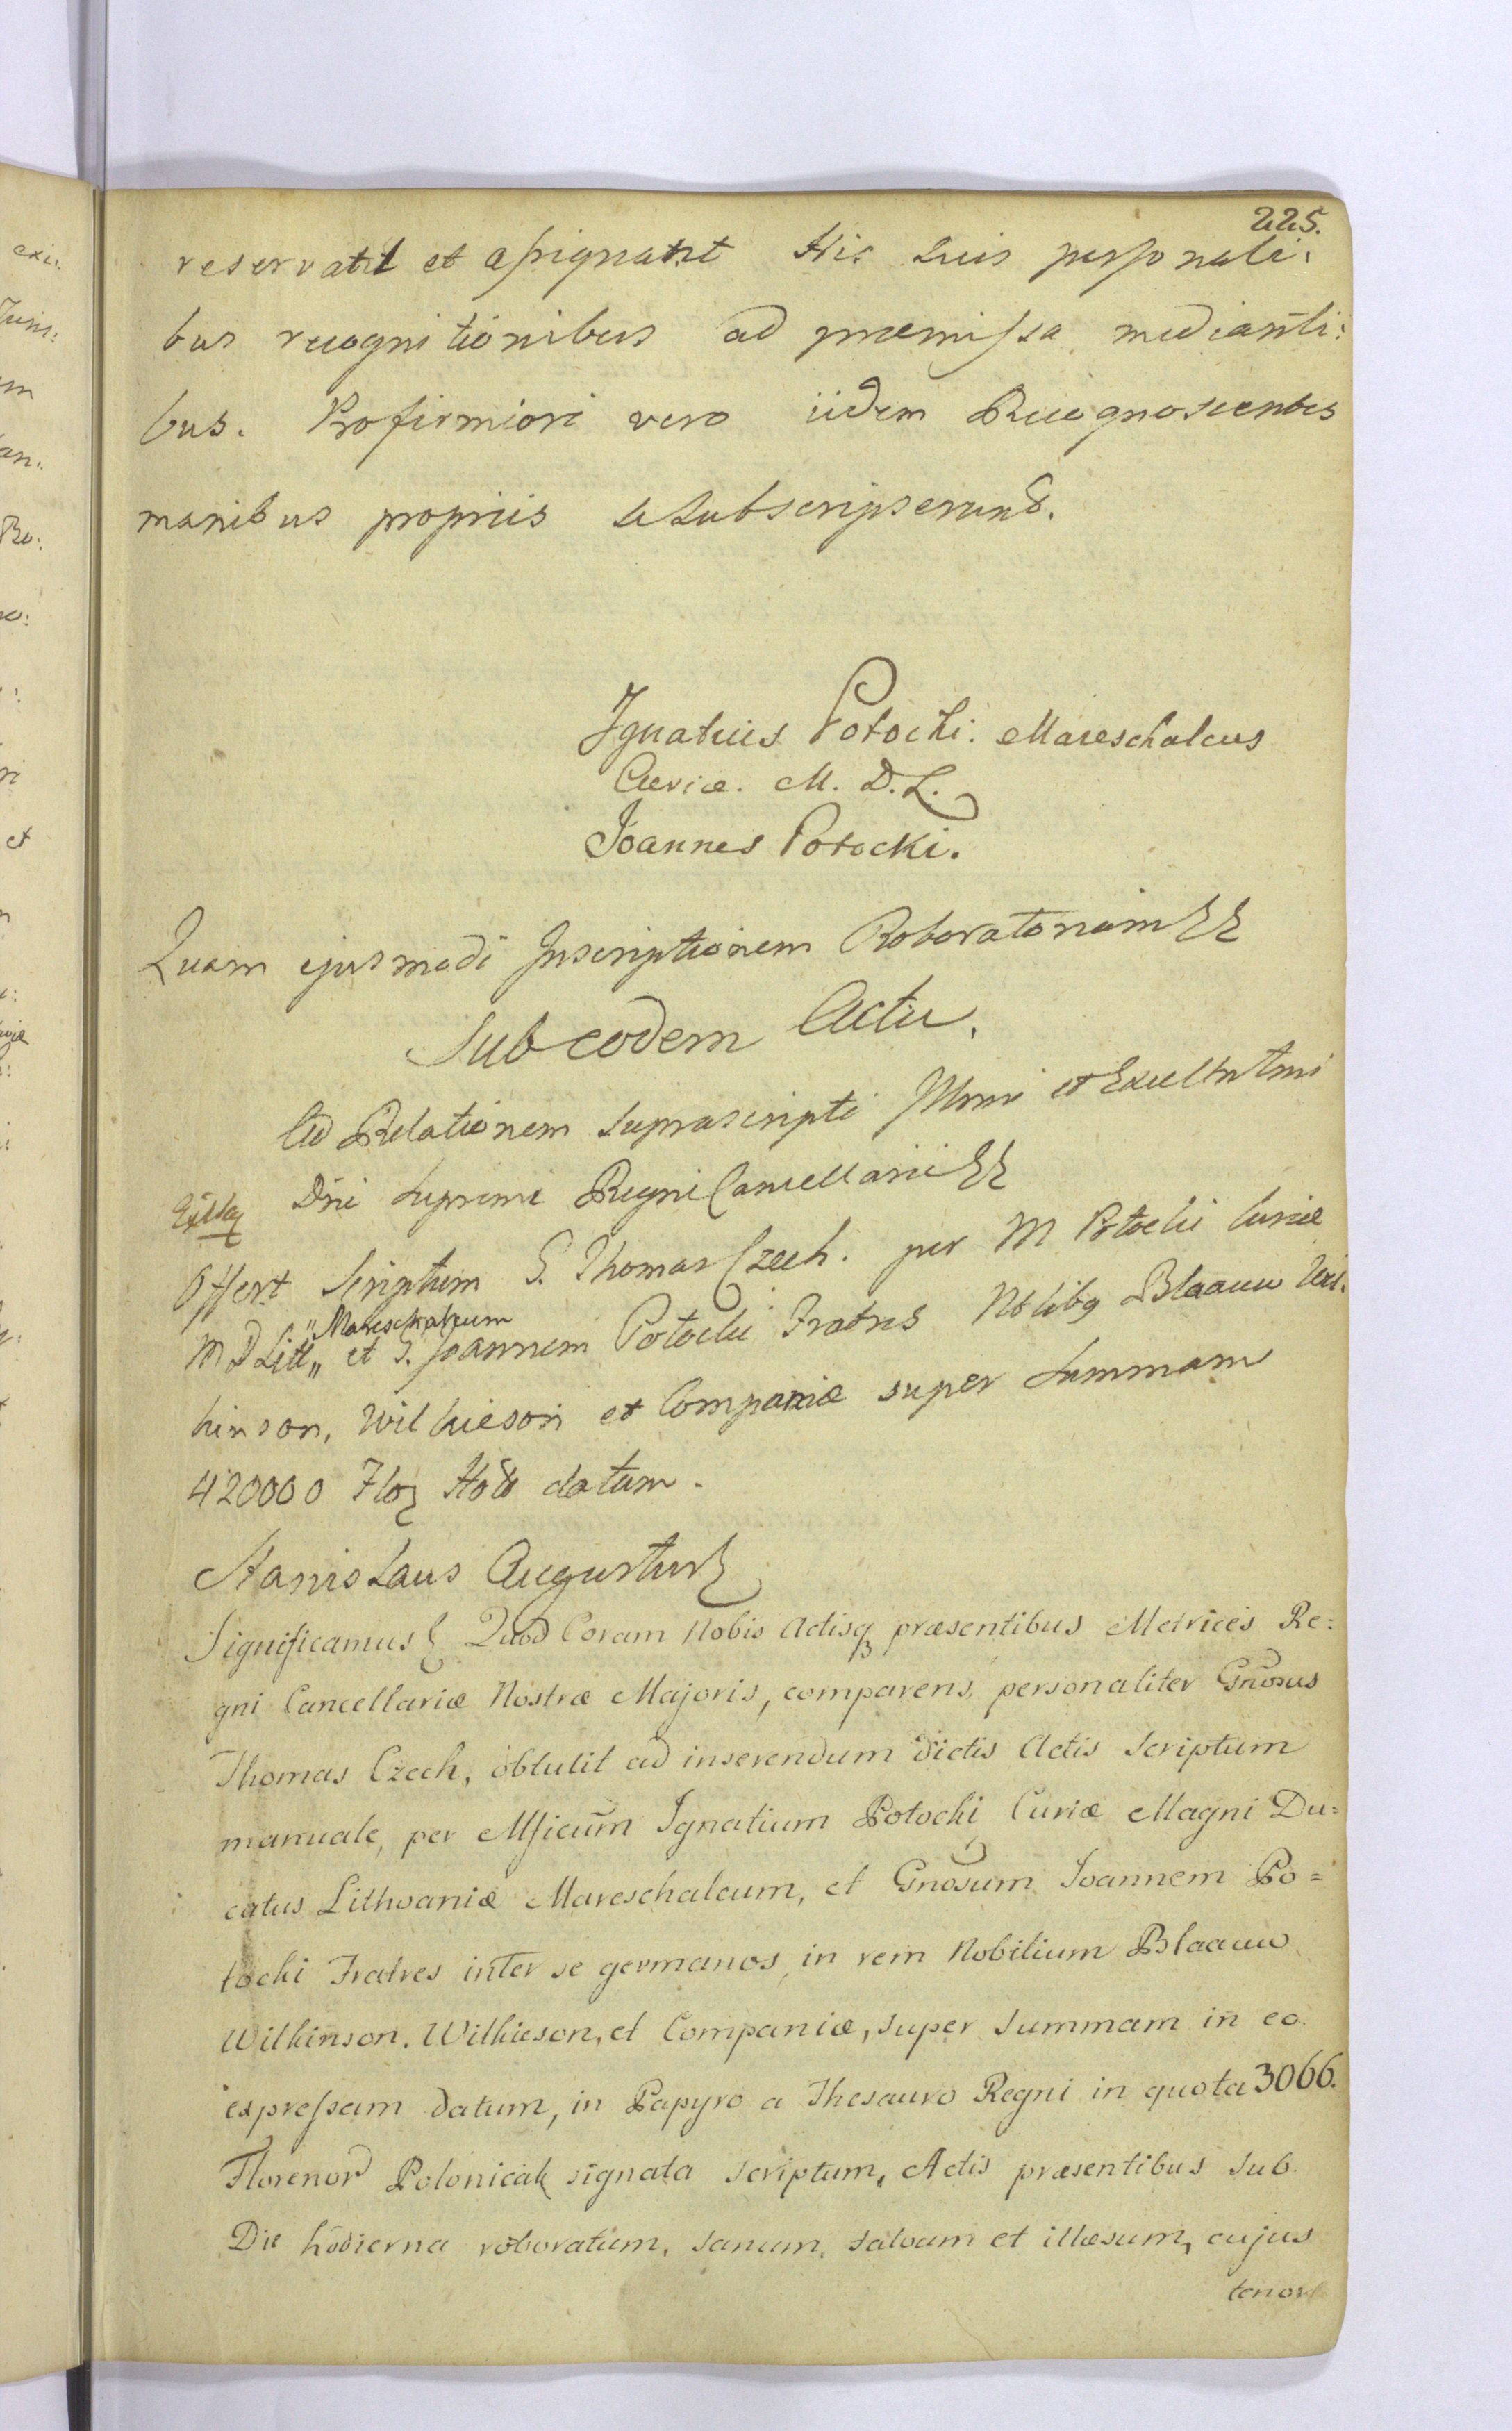 225.
reservant et assignant His suis personali:
bus recognitionibus ad præmissa medianti:
bus. Pro firmiori vero iidem Recognoscentes
manibus propriis se subscripserunt.
Ignatius Potocki. Mareschalcus
Curiæ. M. D. L.
Joannes Potocki.
Quam ejusmodi Inscriptionem Roboratoriam
Sub eodem Actu.
Ad Relationem suprascripti Illmi et Excellntmi
Dni Supremi Regni Cancellarii
Offert Scriptum G. Thomas Czech. per M Potocki Curiæ
„Mareschalcum
M D Litt„ et G. Joannem Potocki Fratres Nblibq Blaauw Wil.
kinson, Wilkieson et Companiæ super summam
420000 Flo Hol datum.
Stanislaus Augustus
Significamus Quod Coram Nobis Actisq præsentibus Metrices Re=
gni Cancellariæ Nostræ Majoris, comparens personaliter Gnosus
Thomas Czech, obtulit ad inserendum dictis Actis Scriptum
manuale, per Mficum Ignatium Potocki Curiæ Magni Du=
catus Lithvaniæ Mareschalcum, et Gnosum Joannem Po=
tocki Fratres inter se germanos, in rem Nobilium Blaauw
Wilkinson. Wilkieson, et Companiæ, super summam in eo
expressam datum, in Papyro a Thesauro Regni in quota 3066.
Florenor Polonical signata scriptum, Actis præsentibus sub
Die hodierna roboratum, sanum, salvum et illæsum, cujus
tenor